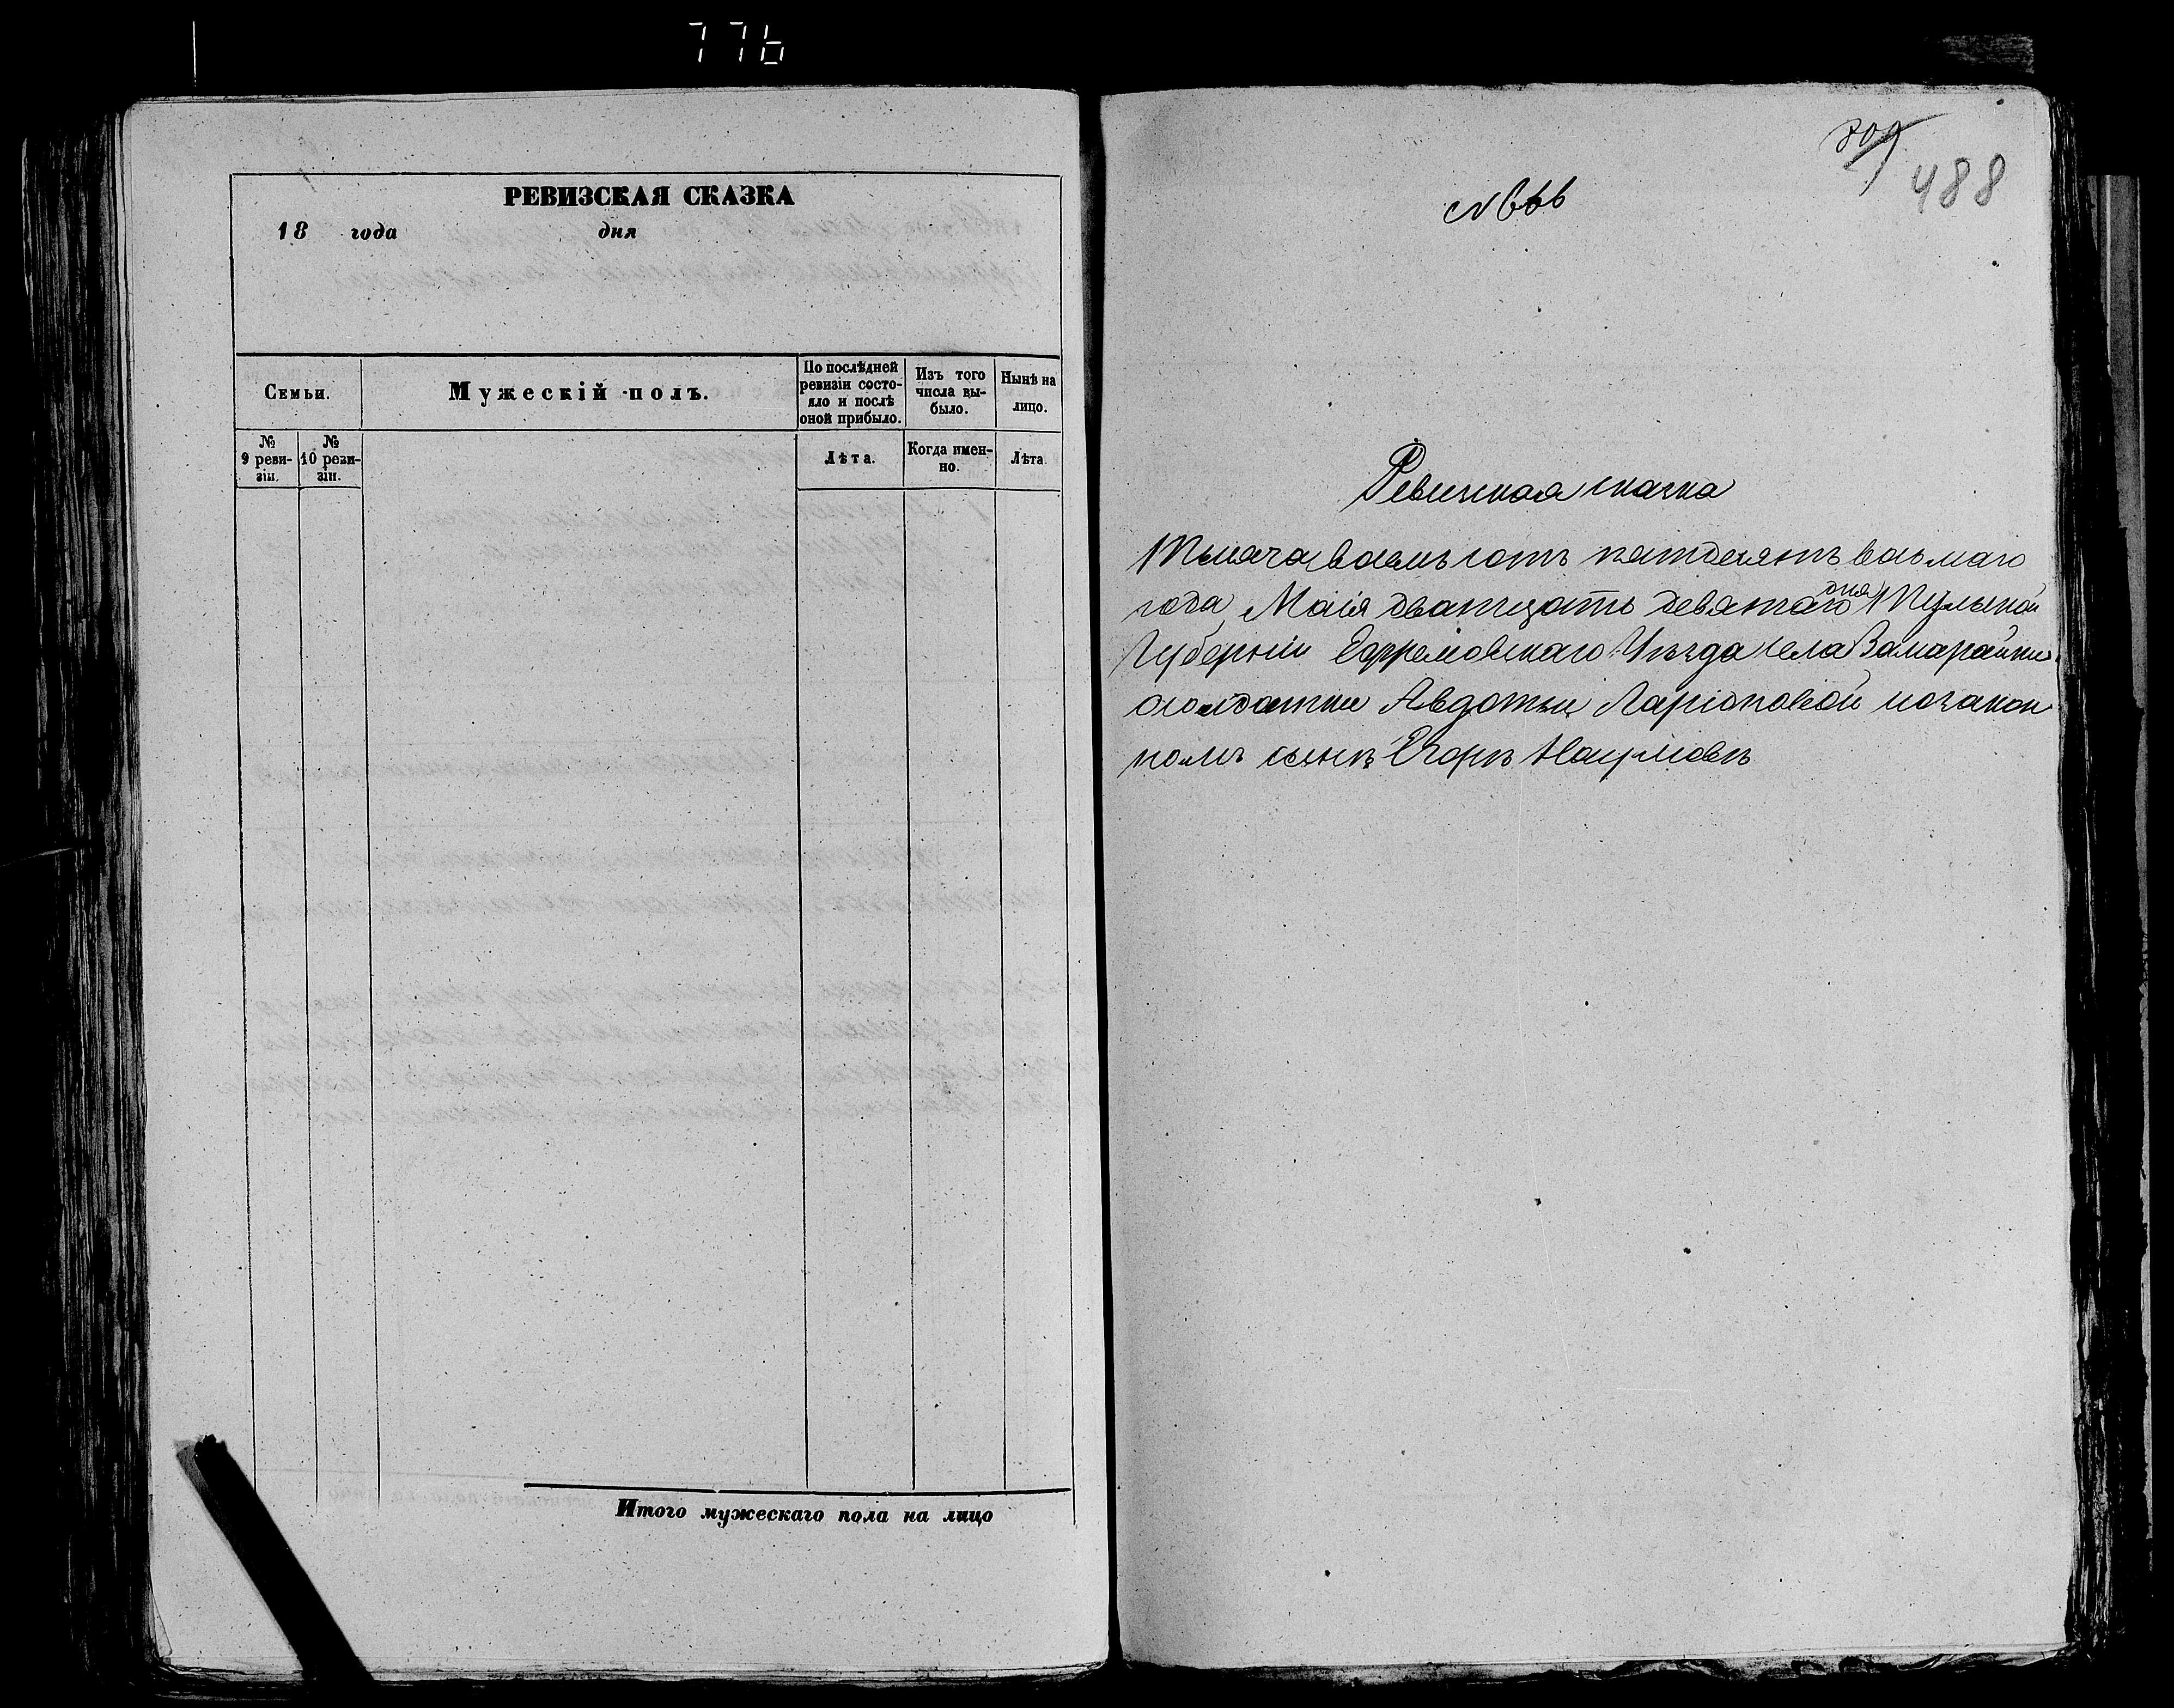 776
РЕВИЗСКАЯ СКАЗКА
18 года дня
Семьи.
Мужескій полъ.
По послѣдней ревизіи состояло и послѣ оной прибыло.
Изъ того числа выбыло.
Нынѣ на лицо.
№ 9 ревизіи.
№ 10 ревизіи.
Лѣта.
Когда именно.
Лѣта
Итого мужескаго пола на лицо
709
488
Ревизская сказка
Тысяча восемь сотъ пятдесятъ восьмаго
года Маія дватцать девятаго дня Тульской
Губерніи Ефремовскаго Уѣзда села Замарайки
солдатки Авдотьи Ларіоновой
сынѣ Егорѣ Наумовѣ